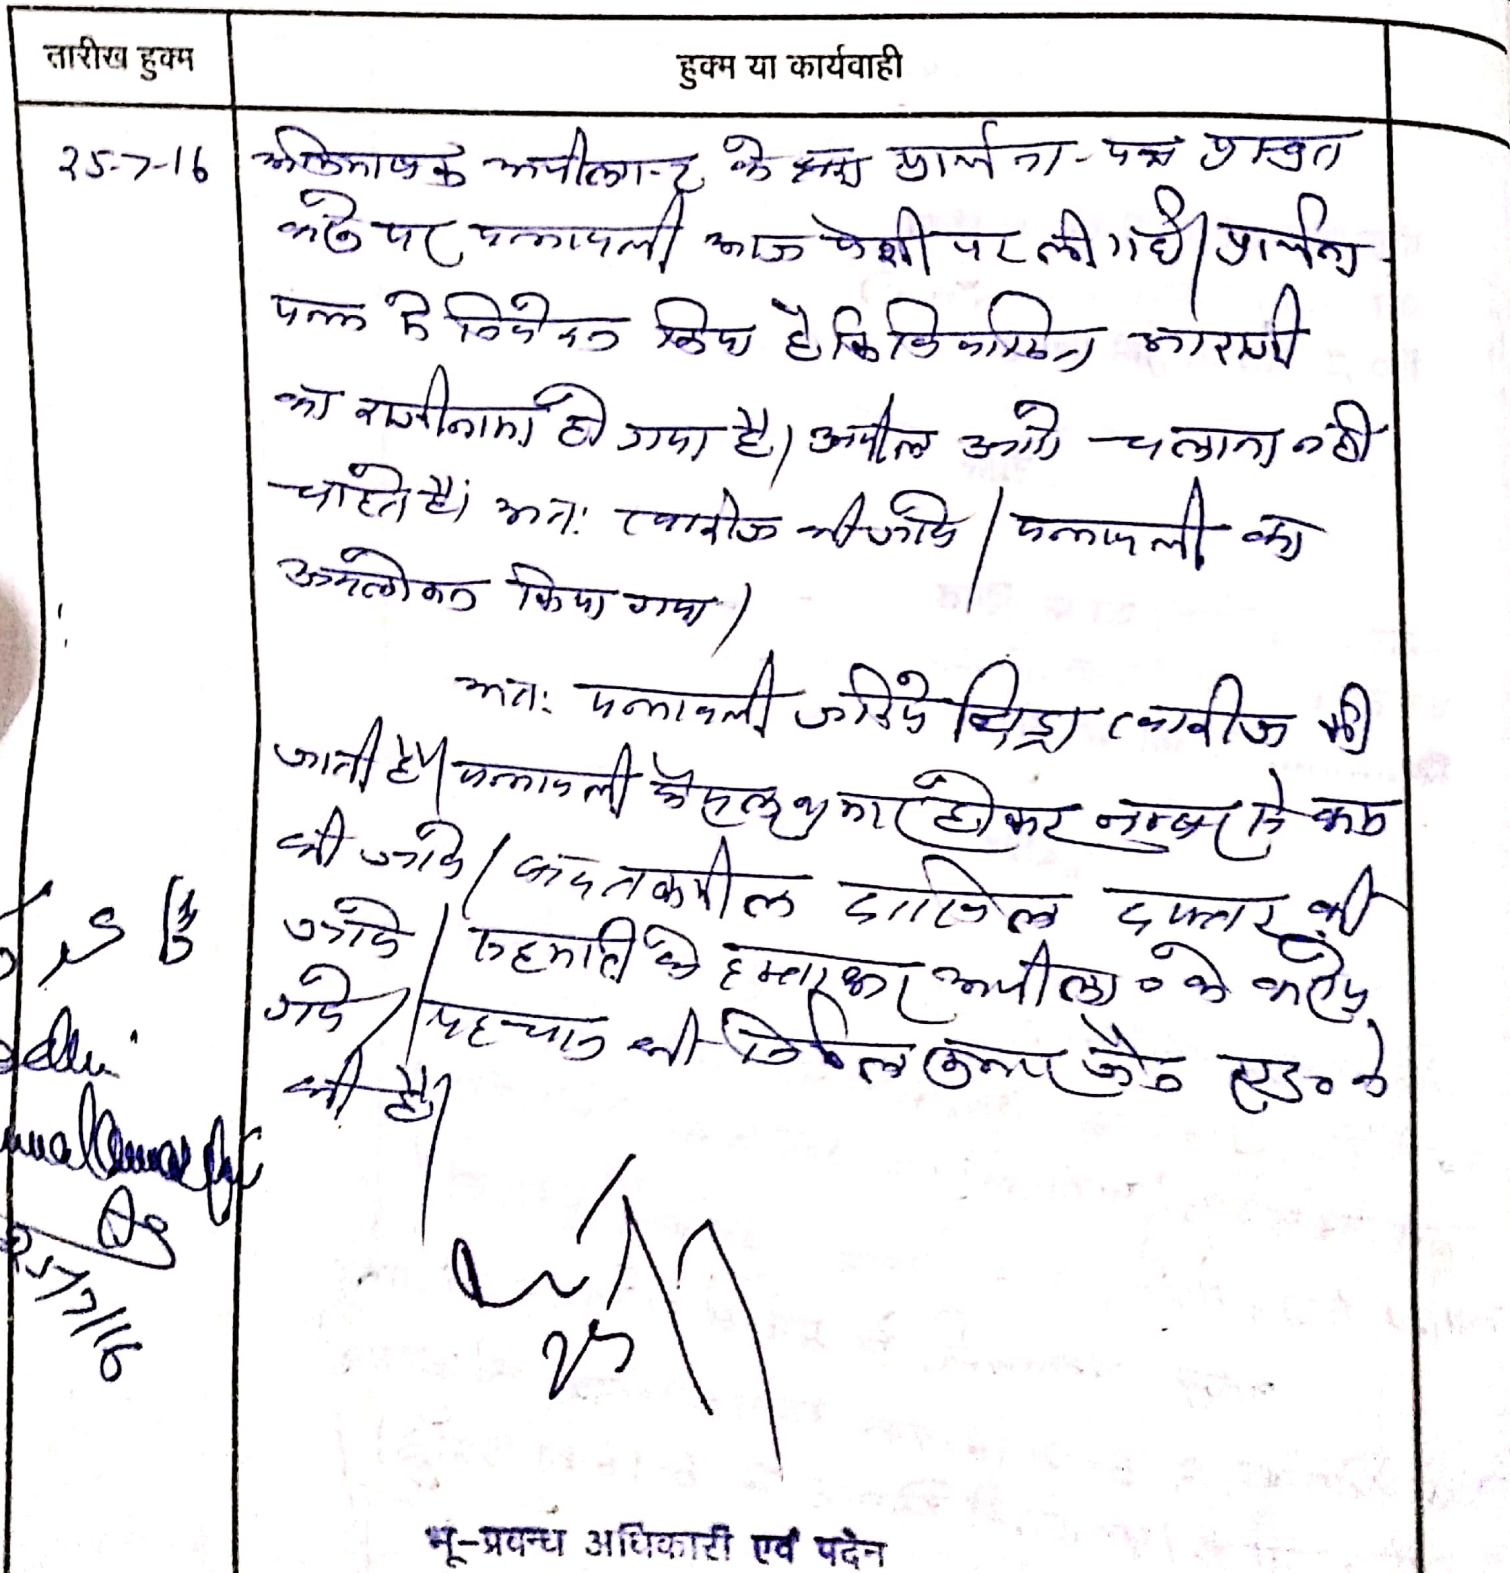 तारीख हुक्म
हुक्म या कार्यवाही
25-7-16
अभिभाषक अपीलान्ट के द्वारा प्रार्थना-पत्र प्रस्तुत
करने पर पत्रावली आज पेशी पर ली गई। प्रार्थना
पत्र में निवेदन किया है कि विवादित आराजी
का राजीनामा हो गया है। अपील आगे चलाना नहीं
चाहते हैं। अतः खारीज की जावे। पत्रावली का
अवलोकन किया गया।
अतः पत्रावली जरिये विड्रा खारीज की
जाती है। पत्रावली फैसल शुमार होकर नम्बर से कम
की जावे। बाद तकमील दाखिल दफ्तर की
जावे। सहमति के हस्ताक्षर अपीला० के कराये
गये। पहचान की निर्मल कुमार जैन एड० ने
की है।
25/7/16
25
भू-प्रबन्ध अधिकारी एवं पदेन